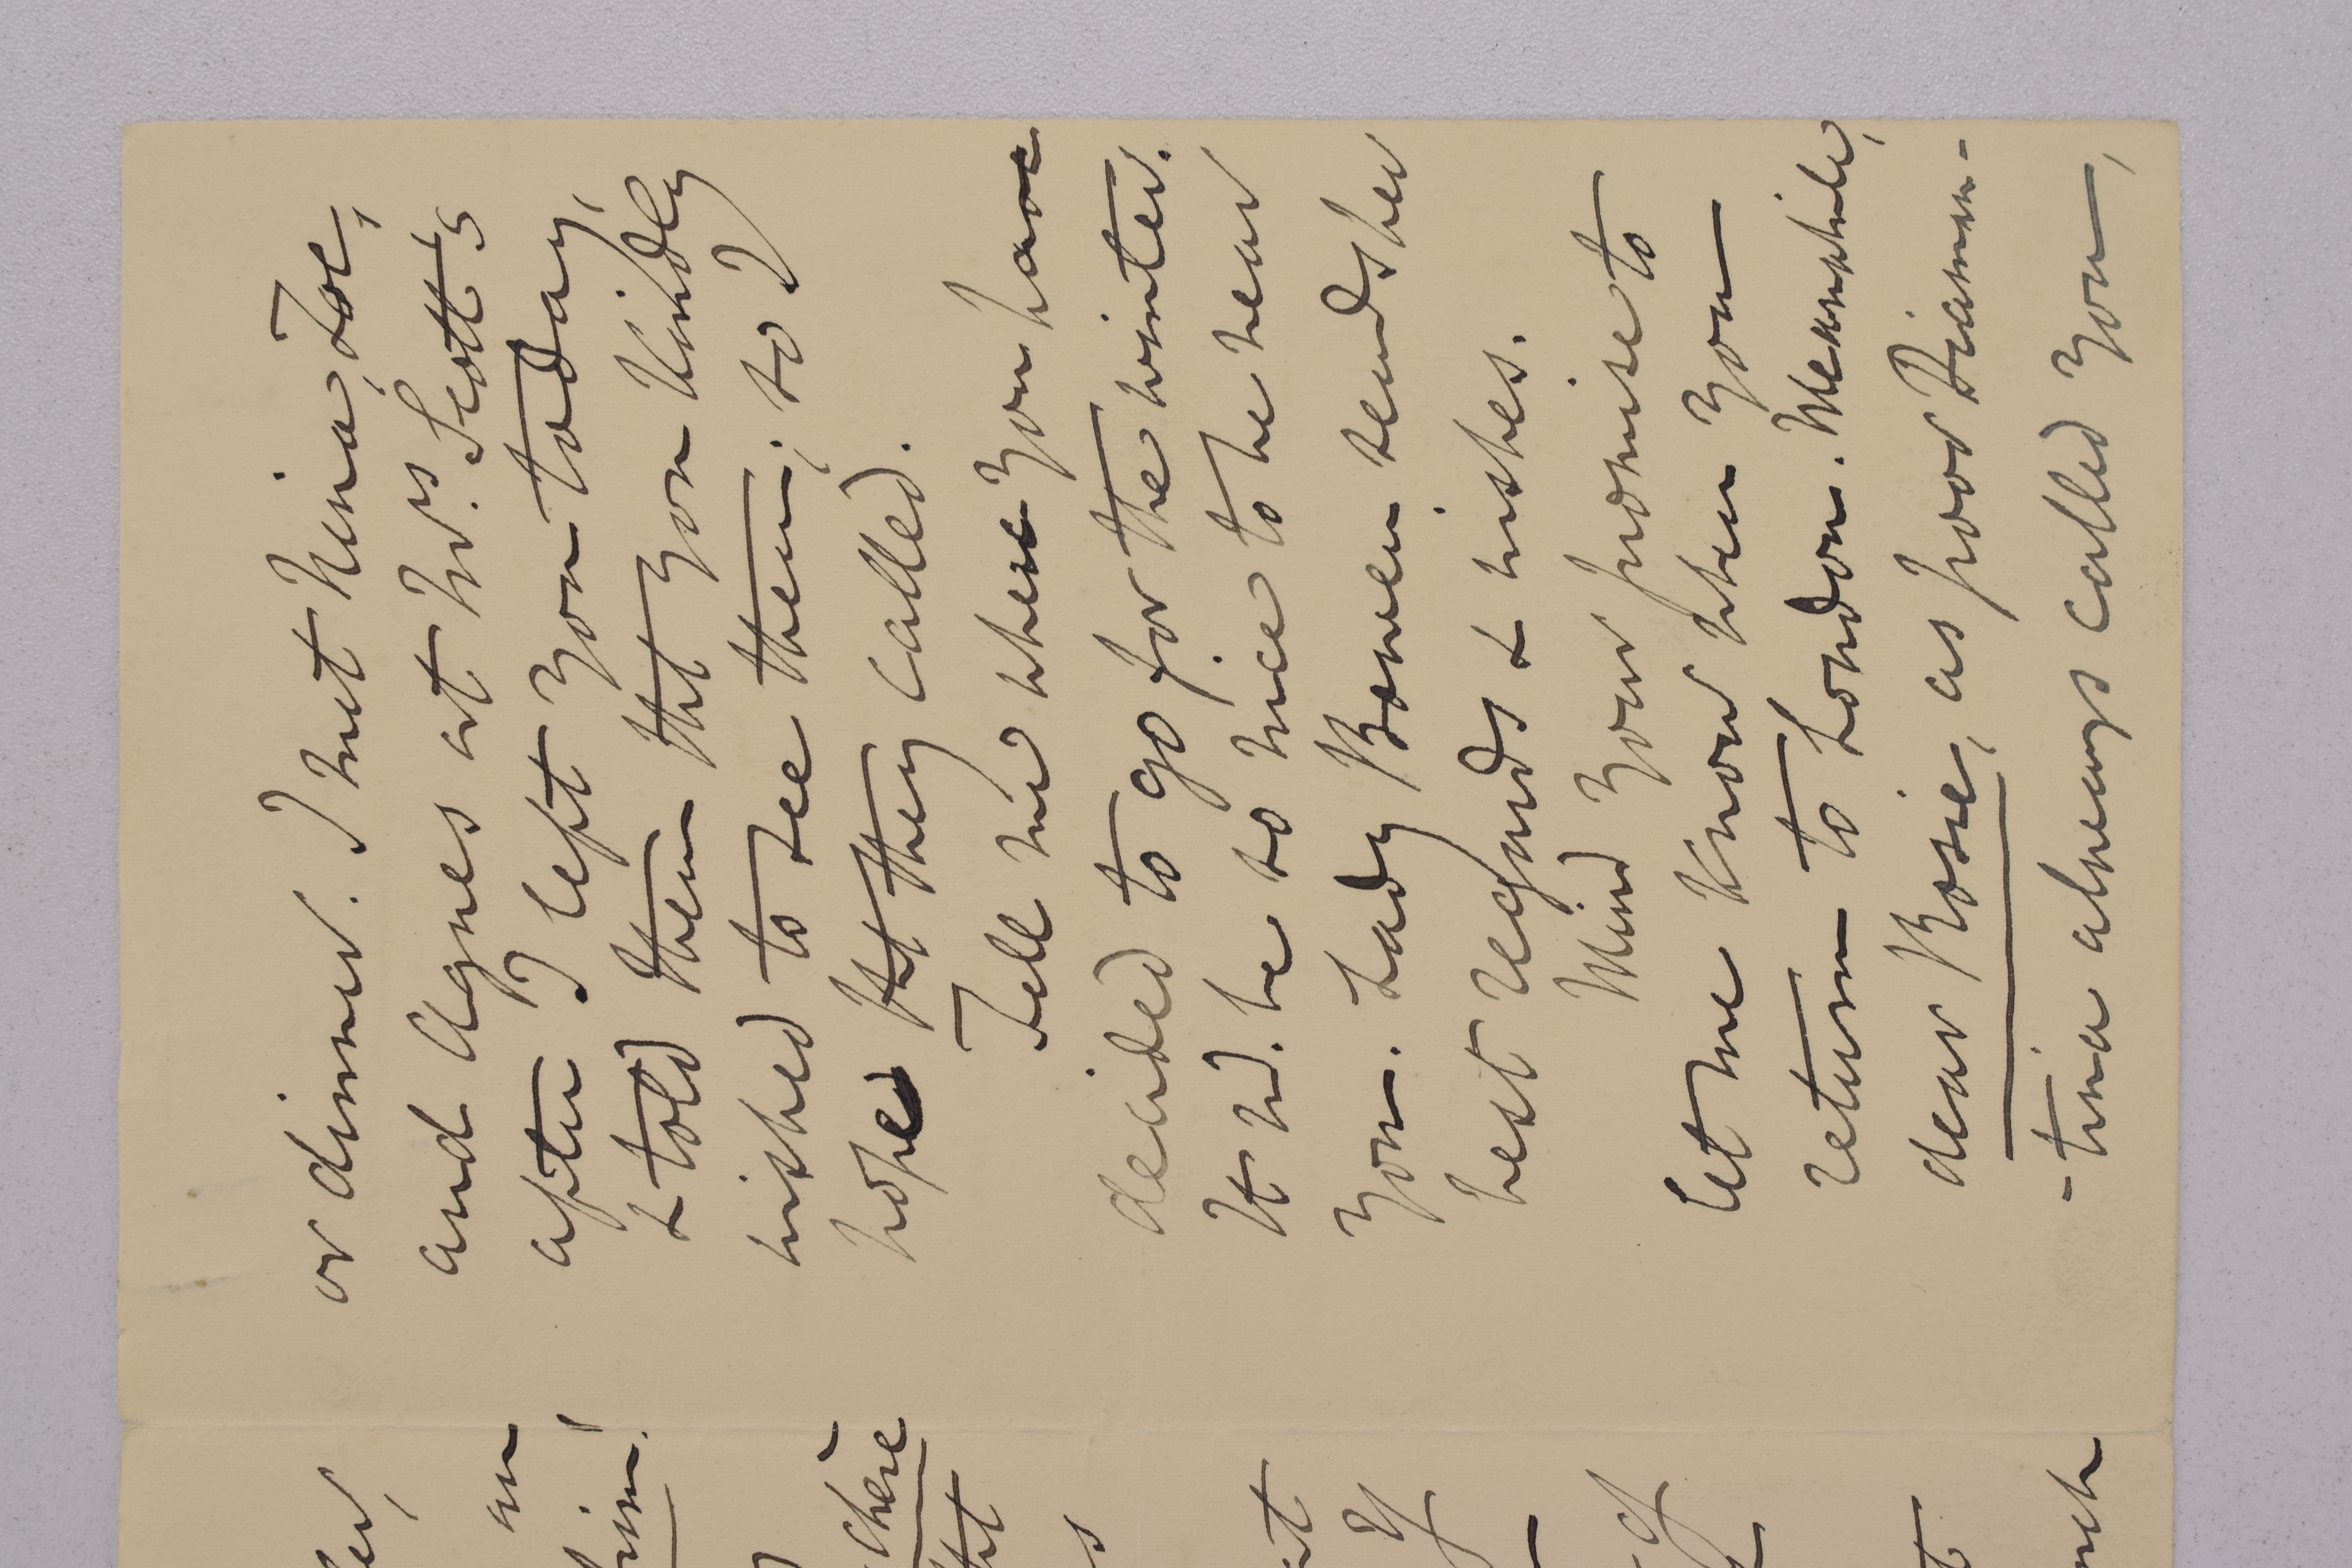 or dinner. I met Nina, Zoe,
and Agnes at Mrs. Scott's
after I left you today,
& told them tht you kindly
wished to see them; so I
hope tht they called.
Tell me where you have
decided to go for the winter.
It wd. be so nice to be near
you. Lady Bowen sends her
best regards & wishes.
Mind your promise to
let me know when you
return to London. Meanwhile,
dear Rosie, as poor Diaman-
-tina always called you,
an
him!
chère
tht
s